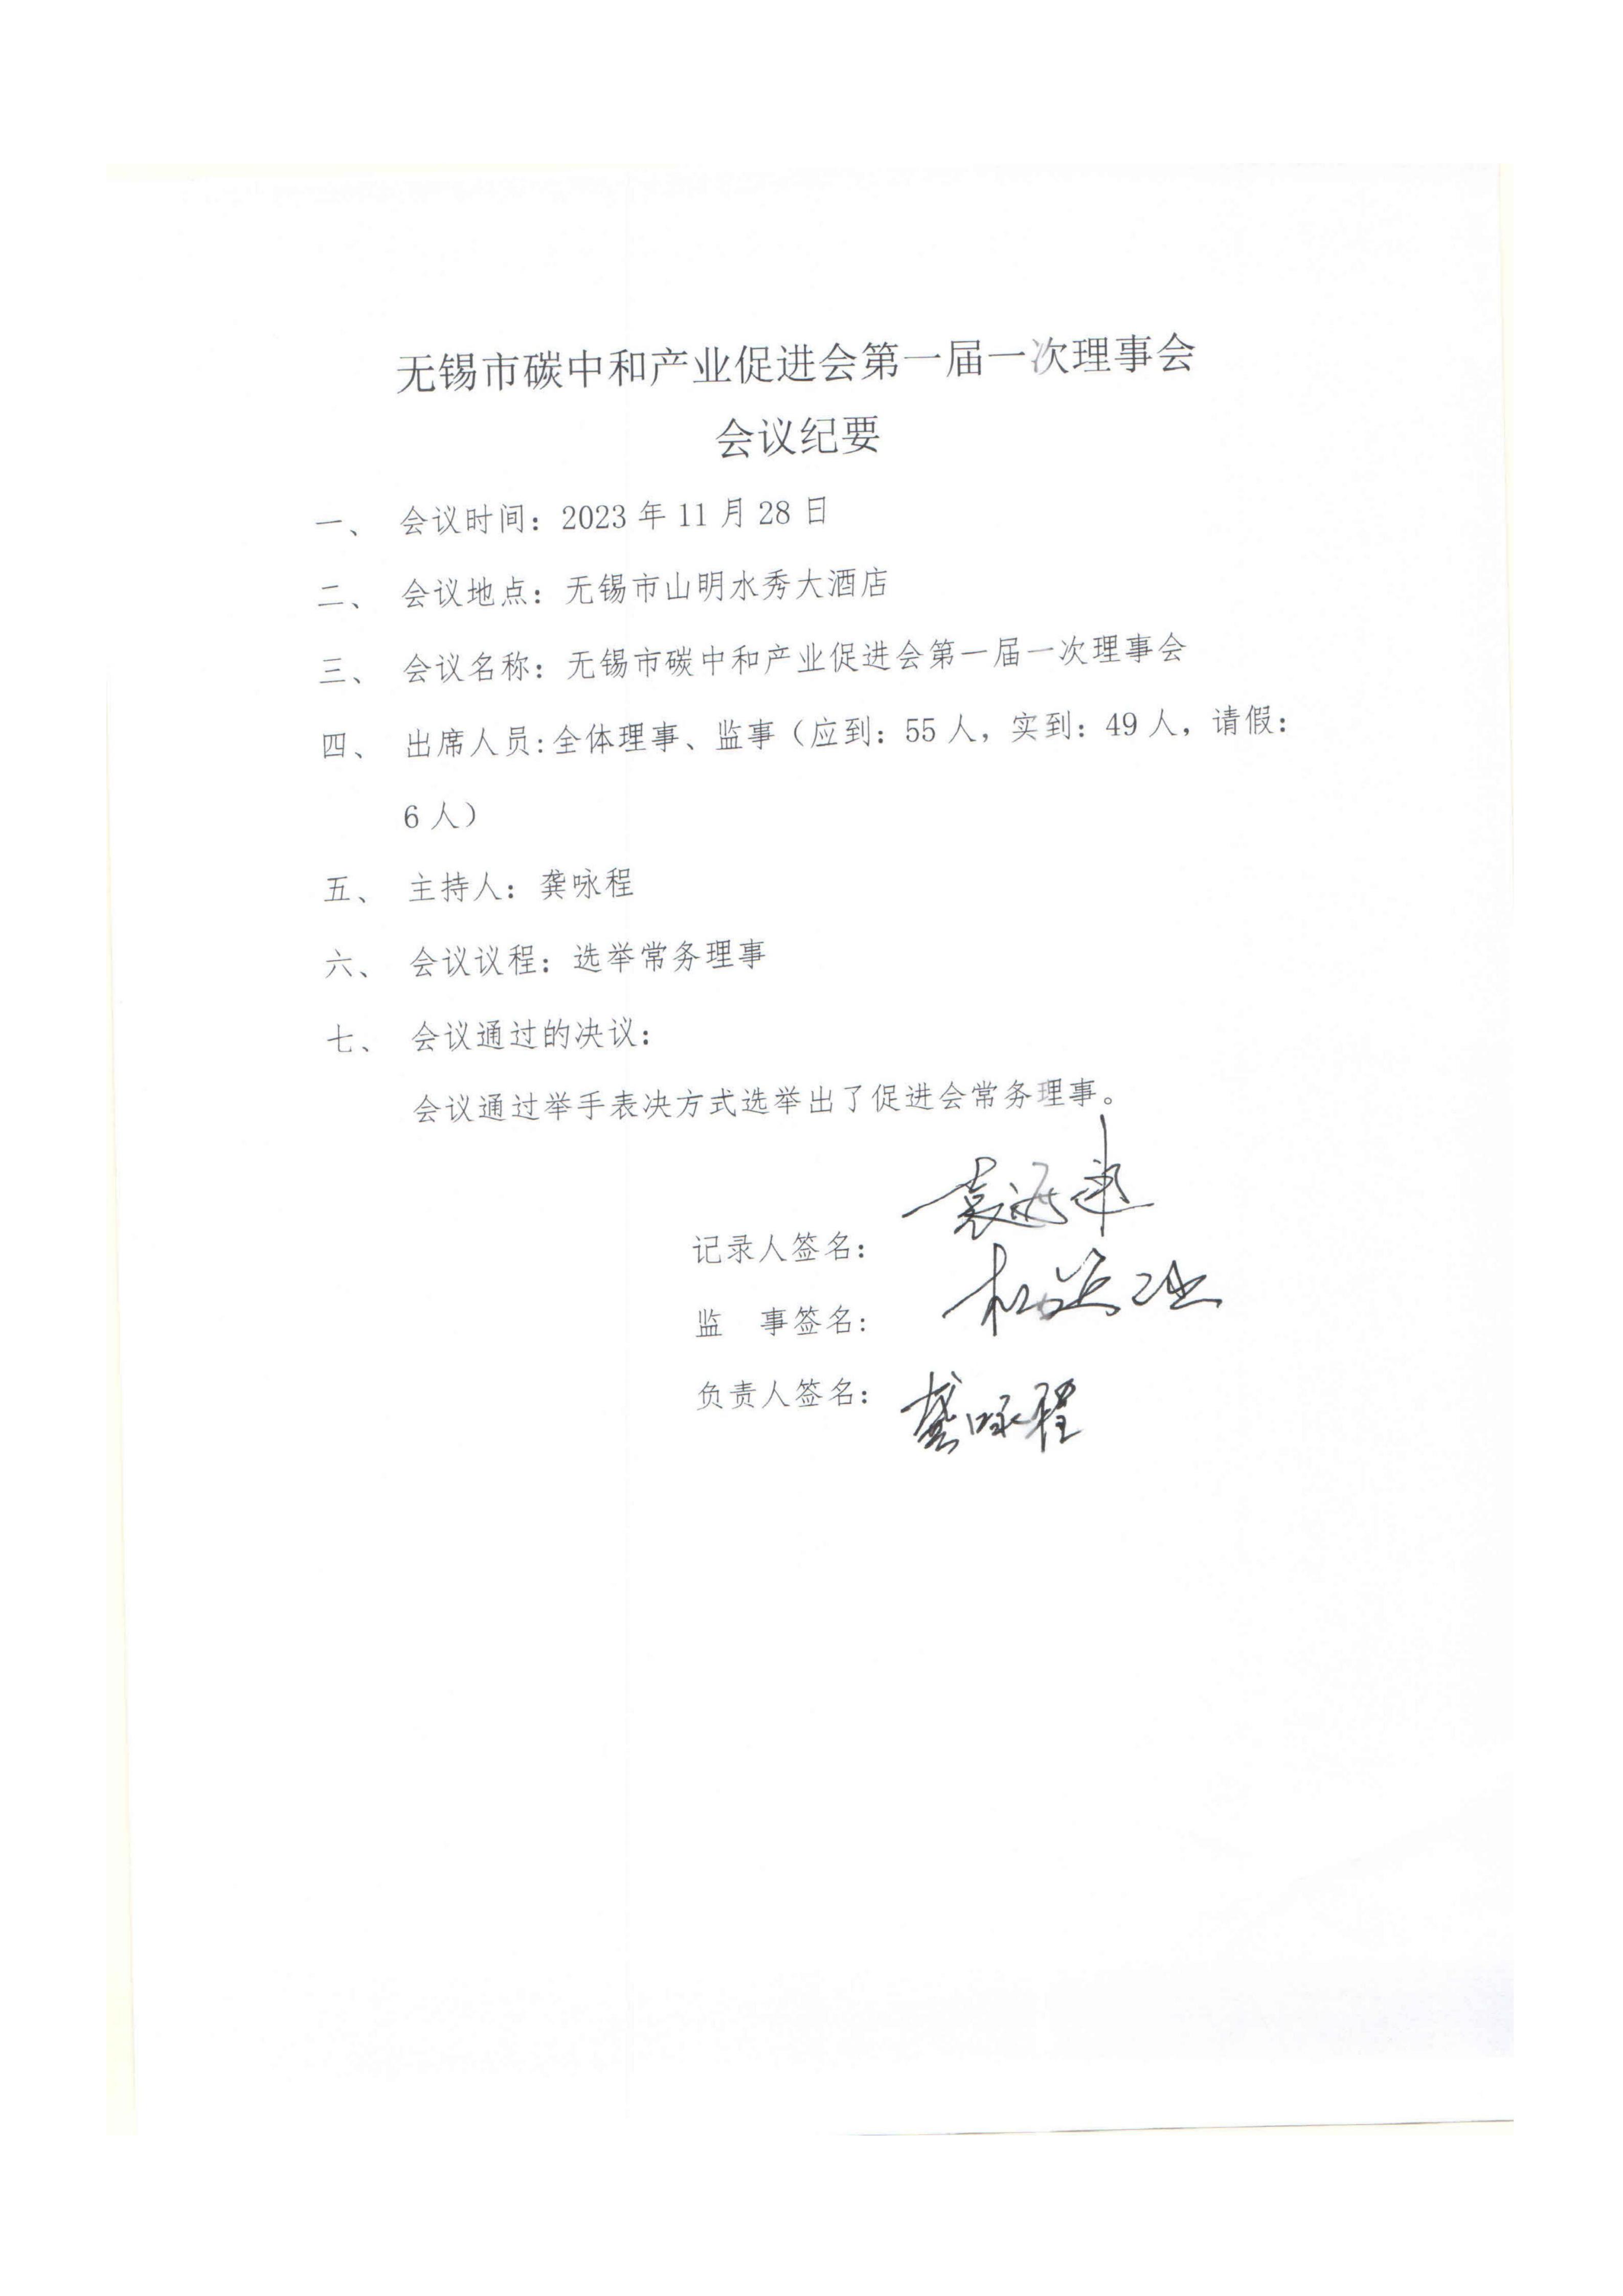 无锡市碳中和产业促进会第一届一次理事会
会议纪要
一、 会议时间：2023 年 11 月 28 日
二、 会议地点：无锡市山明水秀大酒店
三、 会议名称：无锡市碳中和产业促进会第一届一次理事会
四、 出席人员:全体理事、监事（应到：55 人，实到：49 人，请假：
6 人）
五、 主持人：龚咏程
六、 会议议程：选举常务理事
七、 会议通过的决议：
会议通过举手表决方式选举出了促进会常务理事。
记录人签名：
监 事签名：
负责人签名：龚咏程